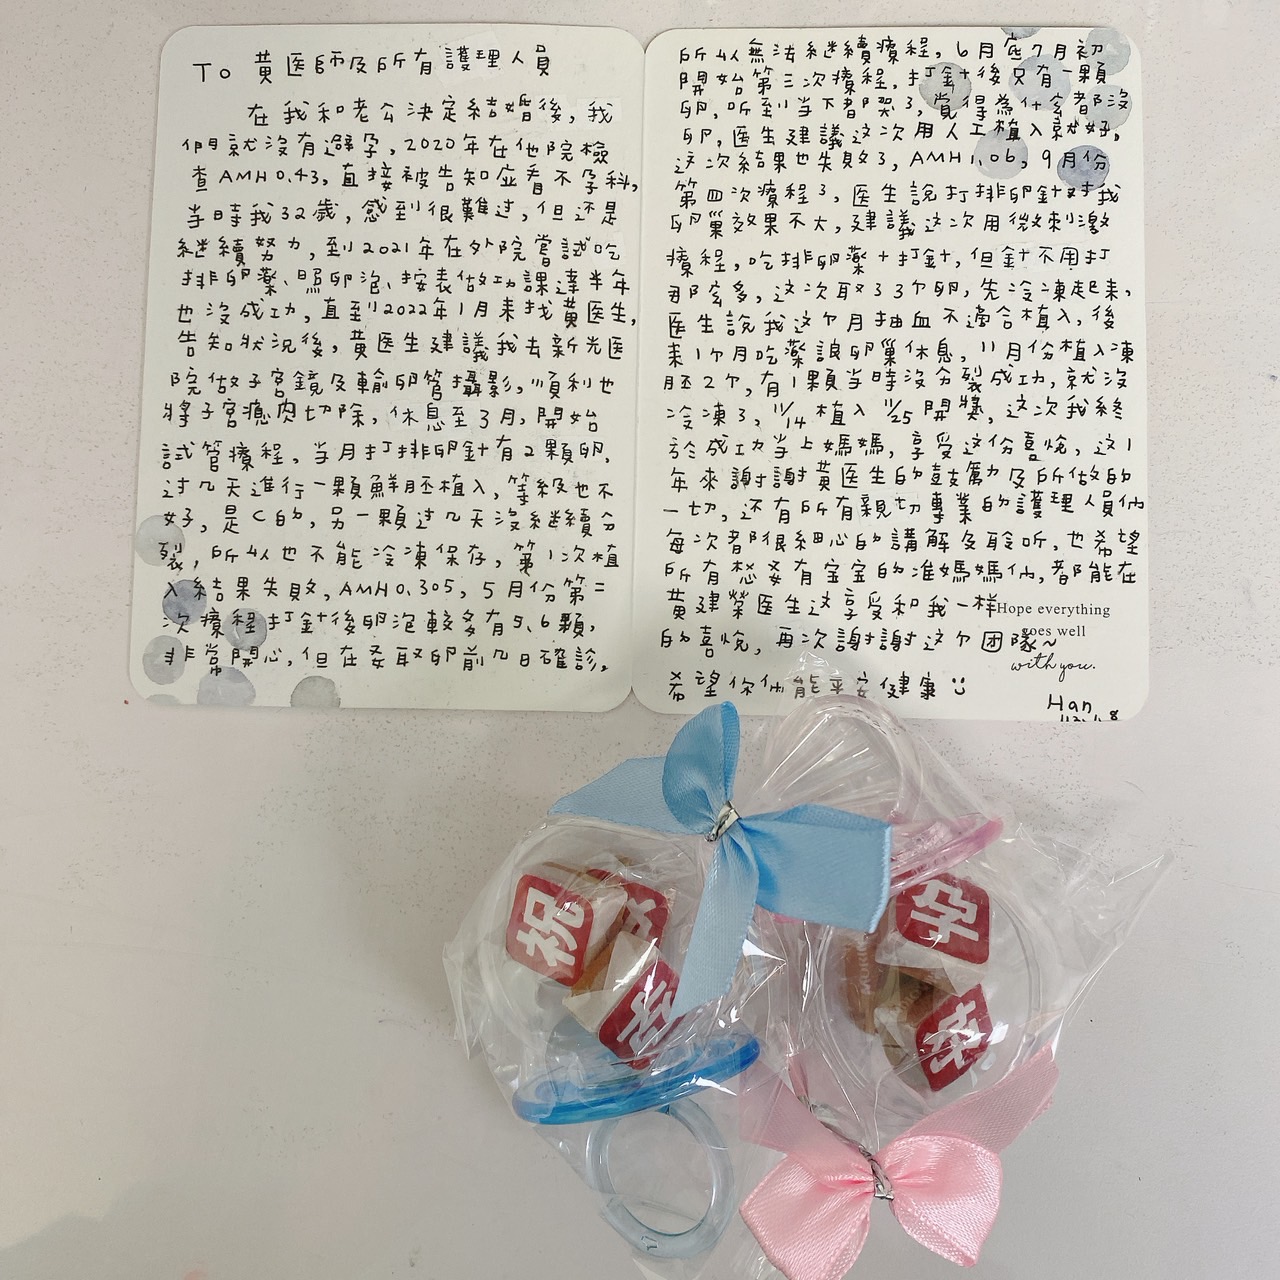 To 黄医師及所有護理人員
在我和老公決定結婚後,我
們就沒有避孕,2020年在他院檢
查AMH0.43,直接被告知应看不孕科,
当時我32歲,感到很難过,但还是
継續努力,到2021年在外院嘗試吃
排卵藥、照卵泡、按表做功課達半年
也沒成功,直到2022年1月来找黄医生,
告知状況後,黄医生建議我去新光医
院做子宮鏡及輸卵管攝影,順利也
將子宮瘜肉切除,休息至3月,開始
試管療程,当月打排卵針有2顆卵,
过几天進行一顆鮮胚植入,等級也不
好,是C的,另一顆过几天沒継續分
裂,所以也不能冷凍保存,第1次植
入結果失敗,AMH0.305,5月份第二
次療程打針後卵泡較多有5、6顆,
非常開心,但在要取卵前几日確診,
所以無法継續療程,6月底7月初
開始第三次療程,打針後只有一顆
卵,听到当下都哭了,覚得為什么都沒
卵,医生建議这次用人工植入就好,
这次結果也失敗了,AMH1.06,9月份
第四次療程了,医生說打排卵針对我
卵巢效果不大,建議这次用微刺激
療程,吃排卵藥+打針,但針不用打
那么多,这次取了3个卵,先冷凍起来,
医生說我这个月抽血不適合植入,後
来1个月吃藥讓卵巢休息,11月份植入凍
胚2个,有1顆当時沒分裂成功,就沒
冷凍了,11/14植入11/25開獎,这次我終
於成功当上媽媽,享受这份喜悅,这1
年來謝謝黄医生的鼓勵及所做的
一切,还有所有親切專業的護理人員们
每次都很細心的講解及聆听,也希望
所有想要有宝宝的准媽媽们,都能在
黄建榮医生这享受和我一样
Hope everything
goes well
with you.
的喜悅,再次謝謝这个团隊~
希望你们能平安健康
Han
祝
孕